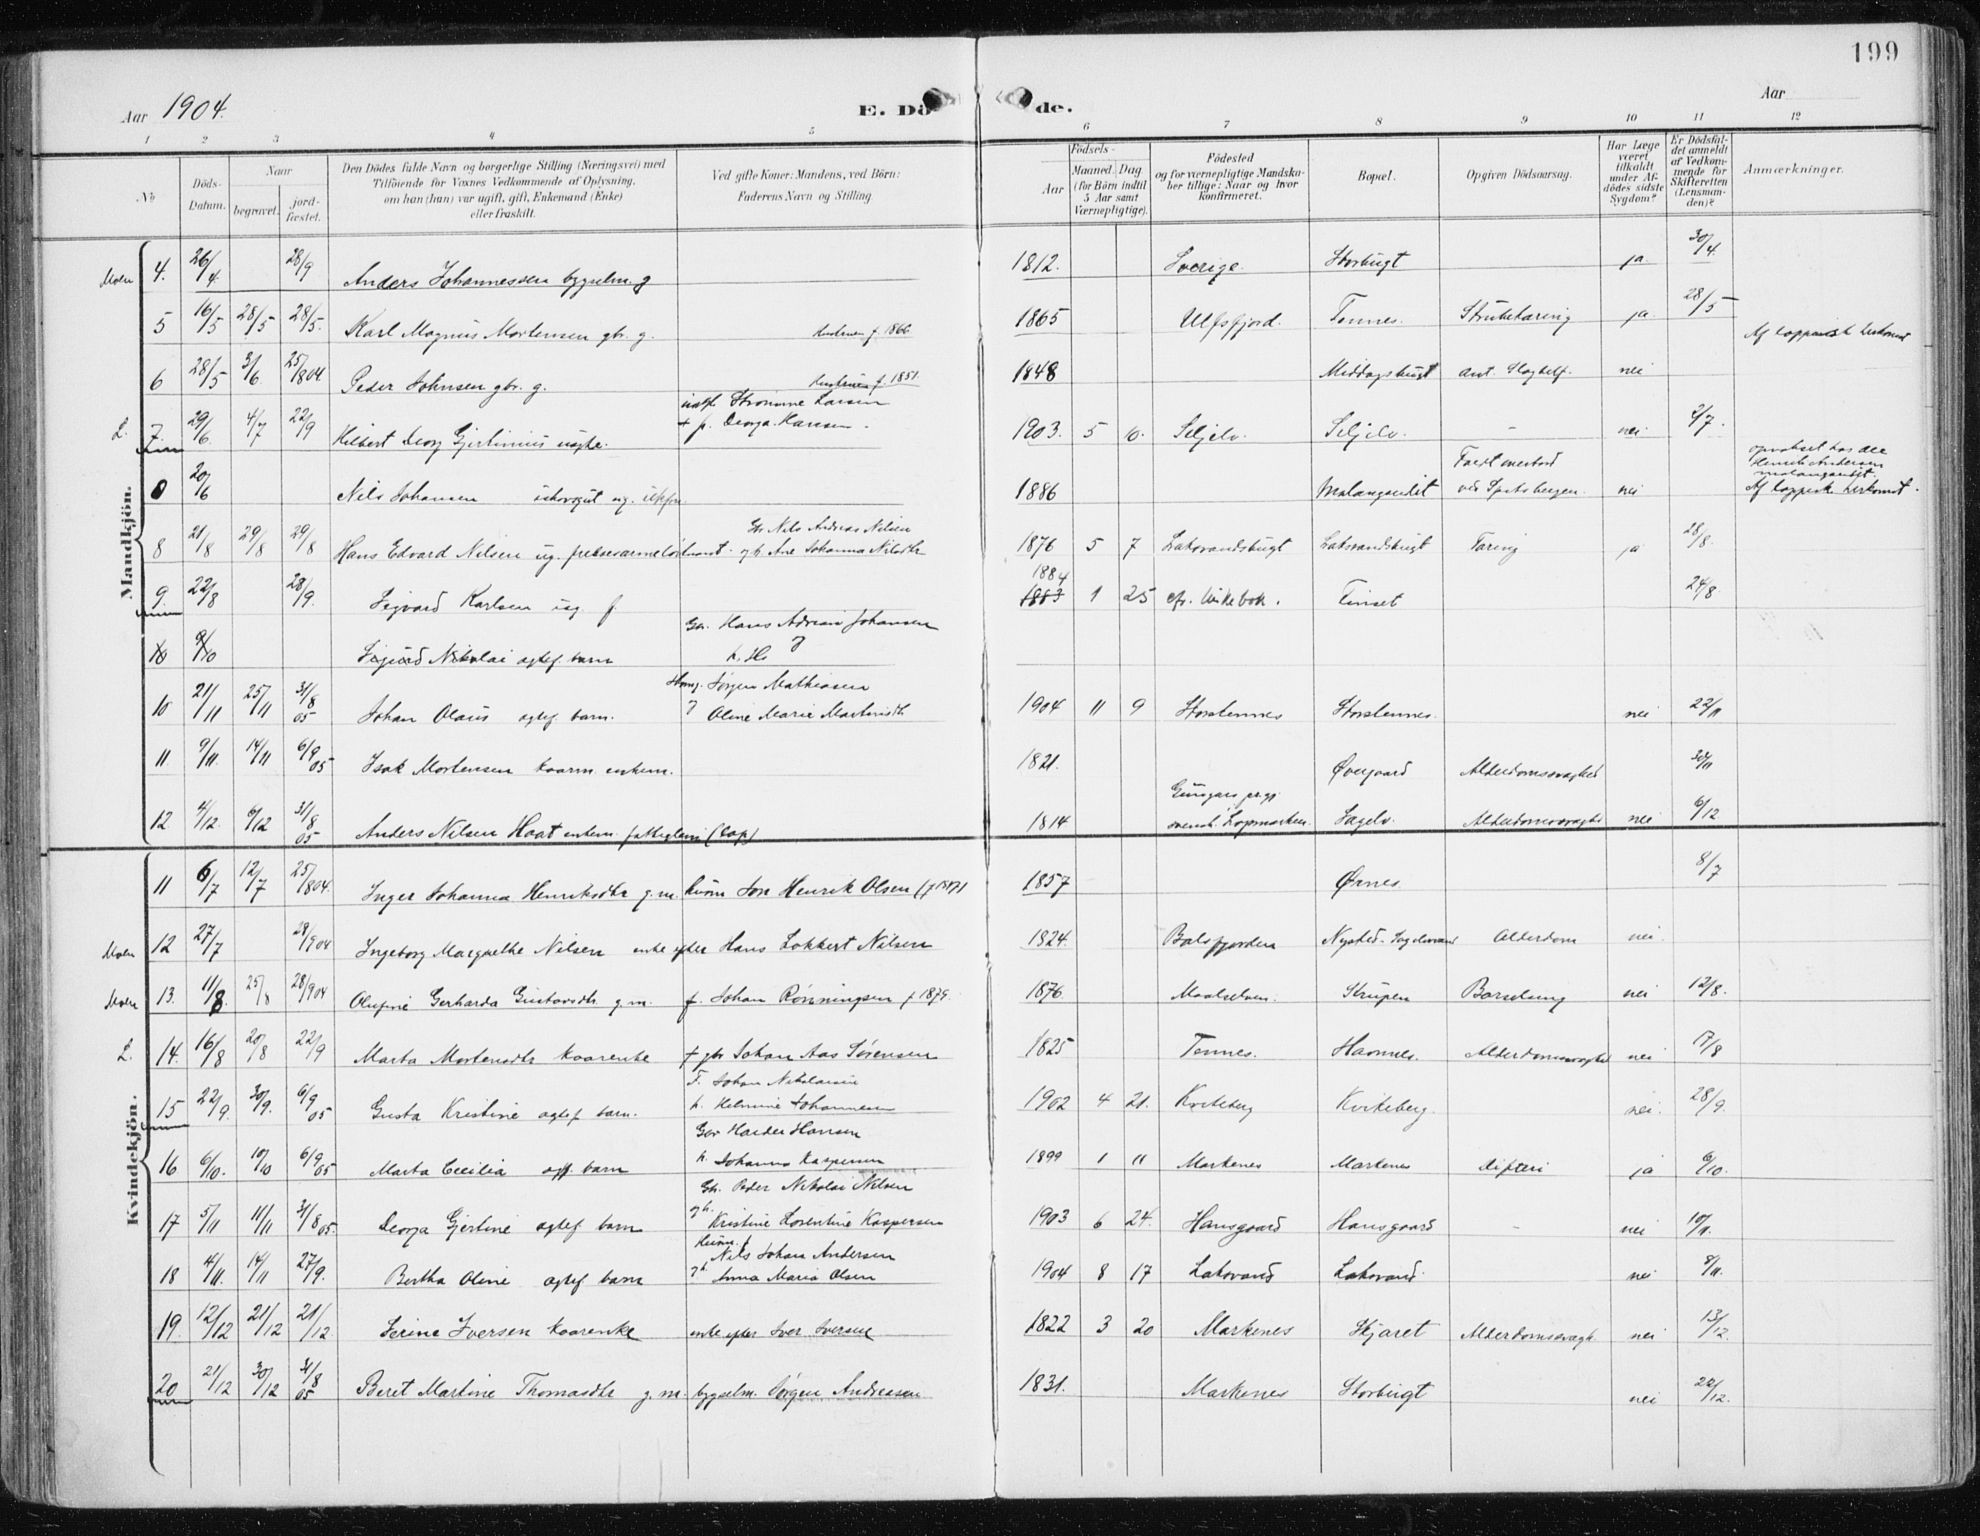 199
Aar 1904.
E. Dö de.
Aar
1 2 3 4 5 6 7 8 9 10 11 12
No
Döds-Datum.
Naar
begravet.
jord-fæstet.
Den Dödes fulde Navn og borgerlige Stilling (Næringsvei) med
Tilföiende for Voxnes Vedkommende af Oplysning,
om han (hun) var ugift, gift, Enkemand (Enke)
eller fraskilt.
Ved gifte Koner: Mandens, ved Börn:
Faderens Navn og Stilling.
Födsels-
Aar
Maaned. Dag
(for Börn indtil
5 Aar samt
Værnepligtige).
Födested
og for værnepligtige Mandska-
ber tillige: Naar og hvor
Konfirmeret.
Bopæl.
Opgiven Dödsaarsag.
Har Læge
været
tilkaldt
under Af-
dödes sidste
Sygdom?
Er Dødsfal-
det anmeldt
af Vedkom-
mende for
Skifteretten
(Lensman-
den)?
Anmærkninger.
Mandkjön.
Moen 4. 26/4 28/9 Anders Johannessen bygselm. g 1812. Sverige. Storbugt ja 30/4.
5 16/5 28/5 28/5. Karl Magnus Mortensen gbr. g. Kustruen f. 1866 1865 Ulfsfjord. Tennes. Strubetæring ja 28/5 Af lappisk herkomst
6 28/5 3/6. 25/8 04. Peder Johnsen gbr. g. Kustruen f. 1851. 1848 Middagsbugt ant. Slagtilf. nei
ugift Strømme Larsen
L. 7. 29/6. 4/7 22/9 Hilbert Georg Gjertinius uægte. + p. Georga Hansen. 1903. 5 10. Seljelv. Seljelv. - nei 2/7.
opvokset hos
Henrik Andersen
malangseidet.
20/6 Nils Johansen ug. 1886 Malangseidet Forulykket ved Spitsbergen. nei Af lappisk herkomst.
8 21/8 29/8 29/8 Hans Edvard Nilsen ug. frelsesarmeløitnant. Gr. Nils Andreas Nilsen og h. Ane Johanna Nilsdtr 1876 5 7 Laksvandsbugt Laksvandsbugt Tæring ja 28/8.
1884
9. 22/8 28/9. Sigvard Karlsen ug f. 1883 1 25 cfr. kirkebok. Tinset 24/8.
10 9/10 Sigurd Nikolai ægtef. barn Gr. Hans Adrian Johansen
10 21/11 25/11 31/8 05 Johan Olaus ægtef barn. Jørgen Mathiasen
Oline Marie Martinsdtr 1904 11 9 Storstennes Storstennes. nei 22/11
11. 9/11. 14/11 6/9 05 Isak Mortensen kaarm. enkem. 1821. Øvergaard Alderdomssvaghed 30/11
12 4/12. 6/12 31/8 05 Anders Nilsen Haat enkem. fattiglem (lap) 1814 svensk Lapmarken. Sagelv. Alderdomssvaghed nei 6/12
Kvindekjön.
11 6/7 12/7 25/8 04. Inger Johanna Henriksdtr g.m. kvæn Jon Henrik Olsen 1857 Ørnes. 8/7
Moen 12 27/7 28/9 04 Ingeborg Margrethe Nilsen enke efter Hans Lokkert Nilsen 1824. Balsfjorden Nysted - Sagelvvand Alderdom nei.
Moen 13. 11/8. 25/8 28/9 04 Olufine Gerharda Gustavsdtr g.m. f. Johan Rønningsen f 1879. 1876. Maalselven. Strupen Barselseng nei 12/8.
L. 14. 16/8 20/8 22/9 Marta Mortensdtr kaarenke + gbr Johan Aas Sørensen 1825 Tennes. Havnnes. Alderdomssvaghed nei 17/8
15 22/9. 30/9. 6/9 05 Gusta Kristine ægtef barn. F. Johan Nikolaisen
h. Helmine Johannesen 1902 4 21. Kviteberg Kviteberg. nei. 28/9.
16 6/10. 10/10 6/9 05 Marta Cecilia ægtf. barn Gbr Hardar Hansen
h. Johanna Kaspersen 1899 1 11 Markenes Markenes difteri ja 6/10.
17 5/11 11/11 31/8 05. Georga Gjertine ægtef barn Gbr. Peder Nikolai Nilsen
og h. Kristine Lorentine Kaspersen 1903 6 24. Hansgaard Hansgaard - nei 10/11.
18 4/11. 14/11 27/9. Bertha Oline ægtef barn Nils Johan Andersen
Anna Maria Olsen 1904 8 17 Laksvand Laksvand. nei 8/11.
19. 12/12 21/12 21/12. Serine Iversen kaarenke enke efter Iver Iversen 1822 3 20 Markenes Skjæret Alderdomssvagh. nei 13/12.
20 21/12 30/12 31/8 05 Beret Martine Thomasdtr g. m. bygselm. Jørgen Andreasen 1831. Markenes Storbugt nei 22/12.